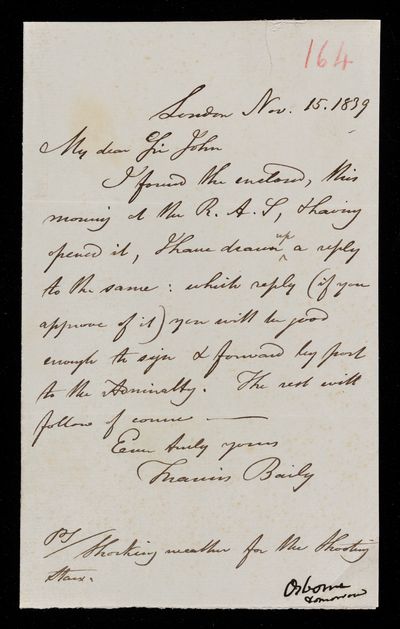 164
London Nov. 15. 1839
My dear Sir John
I found the enclosed, this
morning at the R. A. S, & having
opened it, I have drawn up a reply
to the same: which reply (if you
approve of it) you will be good
enough to sign & forward by post
to the Admiralty. The rest will
follow of course —
Ever truly yours
Francis Baily
PS/ Shocking weather for the Shooting
Stars.
Osborne
tomorrow